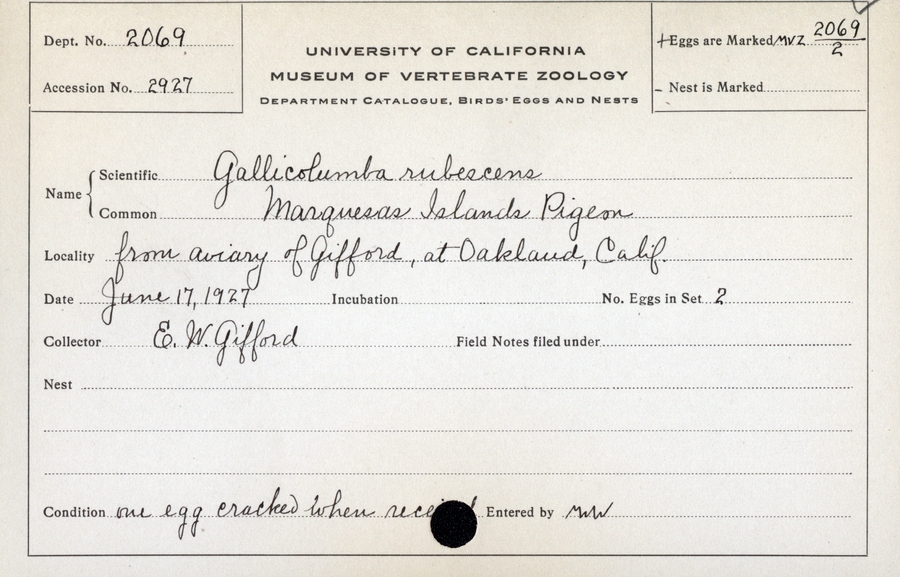 Dept. No. 2069
Accession No. 2927
UNIVERSITY OF CALIFORNIA
MUSEUM OF VERTEBRATE ZOOLOGY
DEPARTMENT CATALOGUE, BIRDS' EGGS AND NESTS
+Eggs are Marked MVZ 2069/2
- Nest is Marked
Name
Scientific Gallicolumba rubescens
Common Marquesas Islands Pigeon
Locality from aviary of Gifford, at Oakland, Calif.
Date June 17, 1927 Incubation No. Eggs in Set 2
Collector E. W. Gifford Field Notes filed under
Nest
Condition one egg cracked when Entered by MW